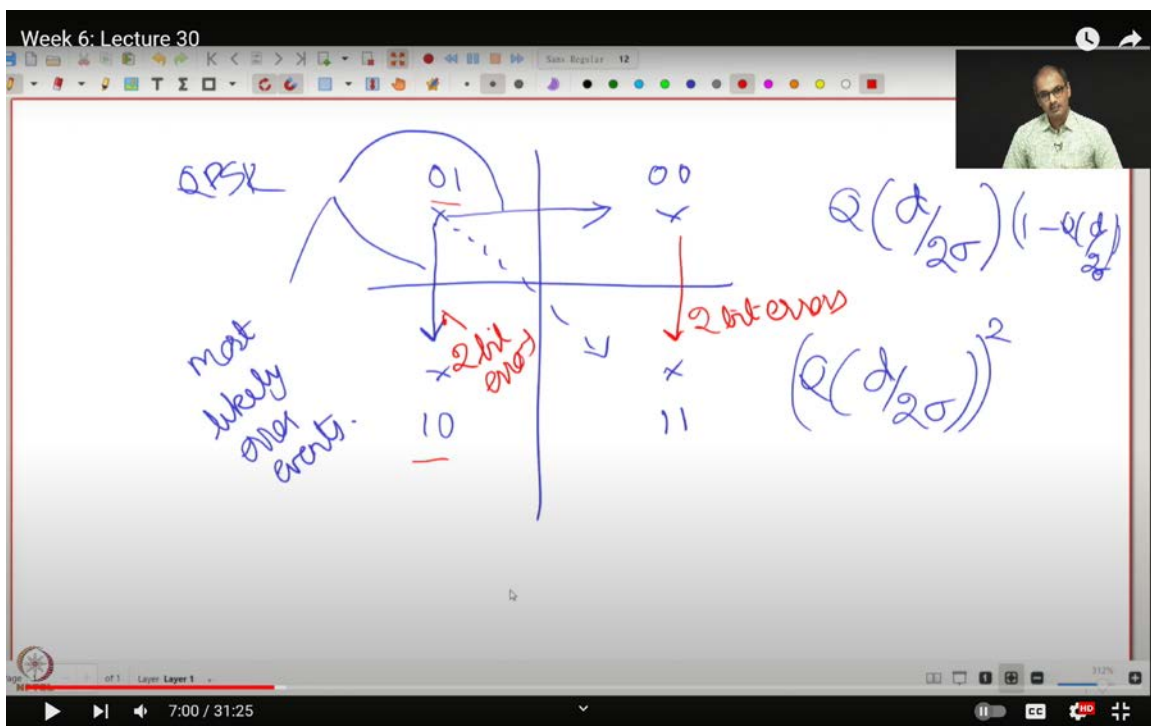 Week 6: Lecture 30
Sans Regular 12
QPSK
01
00
Q(d/2σ)(1-Q(d/2σ)
2 bit errors
2 bit
error
(Q(d/2σ))²
most
likely
error
events.
10
11
of 1 Layer Layer 1
312%
NPTEL
7:00 / 31:25
CC
HD